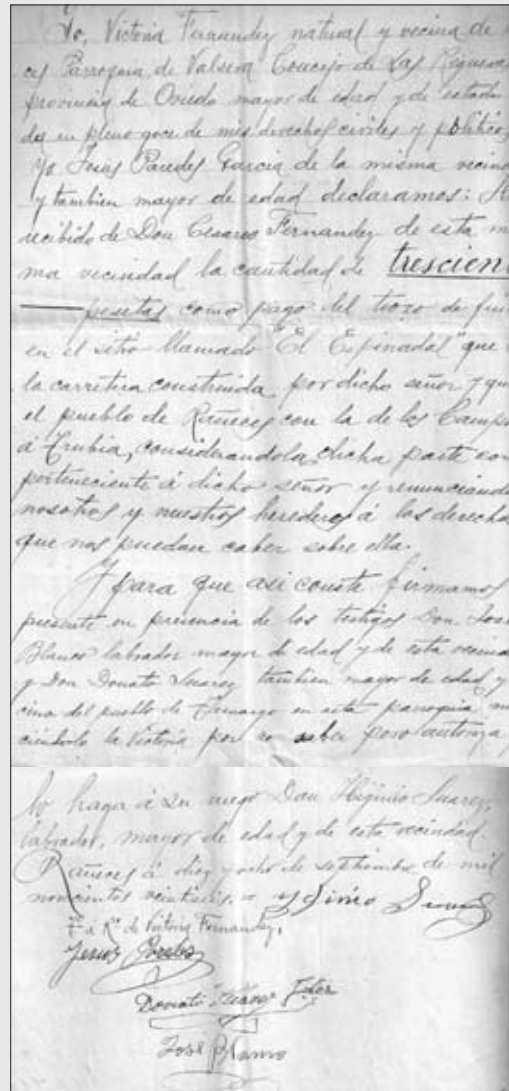 Yo, Victoria Fernandez natural y vecina de
ces Parroquia de Valsera Concejo de Las Regueras
provincia de Oviedo mayor de edad y de estado
da en pleno goce de mis derechos civiles y politicos
yo Jesus Paredes Garcia de la misma vecind
y tambien mayor de edad declaramos: H
recibido de Don Cesareo Fernandez de esta mi
ma vecindad la cantidad de trescien
pesetas como pago del trozo de fin
en el sitio llamado "El Espinadal" que
la carretera construida por dicho señor y que
el pueblo de Rañeces con la de los Campo
á Trubia, considerandola dicha parte com
perteneciente á dicho señor y renunciando
nosotros y nuestros herederos á los derecho
que nos puedan caber sobre ella.
Y para que asi conste firmamos
presente en presencia de los testigos Don José
Blanco labrador mayor de edad y de esta vecind
y Don Donato Suarez tambien mayor de edad y
cino del pueblo de en esta parroquia, no
ciendolo la Victoria por no saber pero autoriza
lo haga á su ruego Don Higinio Suarez,
labrador, mayor de edad y de esta vecindad
Rañeces á diez y ocho de septiembre de mil
novecientos veintiseis. = Yginio Suarez
Tº á Rº de Victoria Fernandez,
Jesus Paredes
Donato Suarez
José Blanco